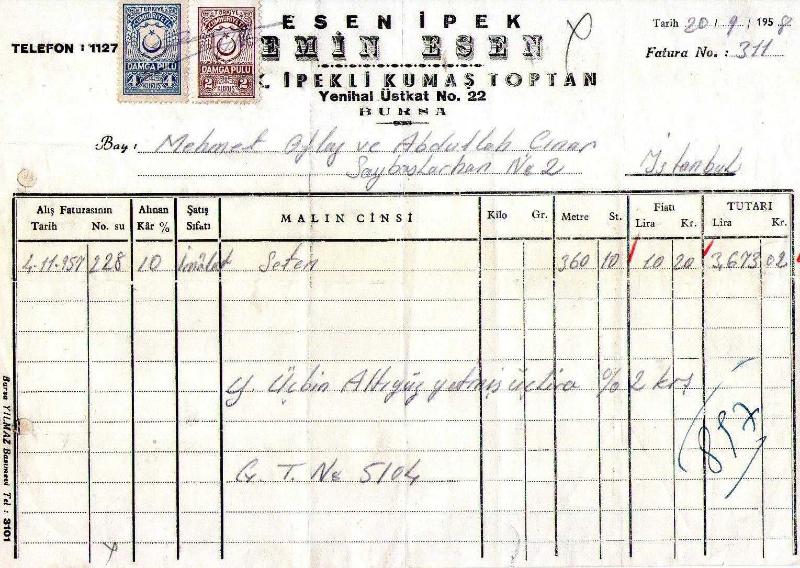 TÜRKİYE CUMHURİYETİ
DAMGA PULU
4 KURUŞ 4
TÜRKİYE CUMHURİYETİ
DAMGA PULU
2 KURUŞ 2
ESEN İPEK
TELEFON : 1127
EMİN ESEN
Tarih 20 / 9 / 1958
Fatura No. : 311
İPEKLİ KUMAŞ TOPTAN
Yenihal Üstkat No. 22
BURSA
Bay : Mehmet ve Abdullah Çınar
No 2 İstanbul
Alış Faturasının Tarih No. su
Alınan Kâr %
Satış Sıfatı
MALIN CİNSİ
Kilo Gr.
Metre St.
Fiatı Lira Kr.
TUTARI Lira Kr.
4-11-957 228 10 İmâlat Seten 360 10 10 20 3,673 02
Y. Üçbin Altıyüz yetmiş üç lira % 2 krş
857
G. T. No 5104
Bursa YILMAZ Basımevi Tel : 3101